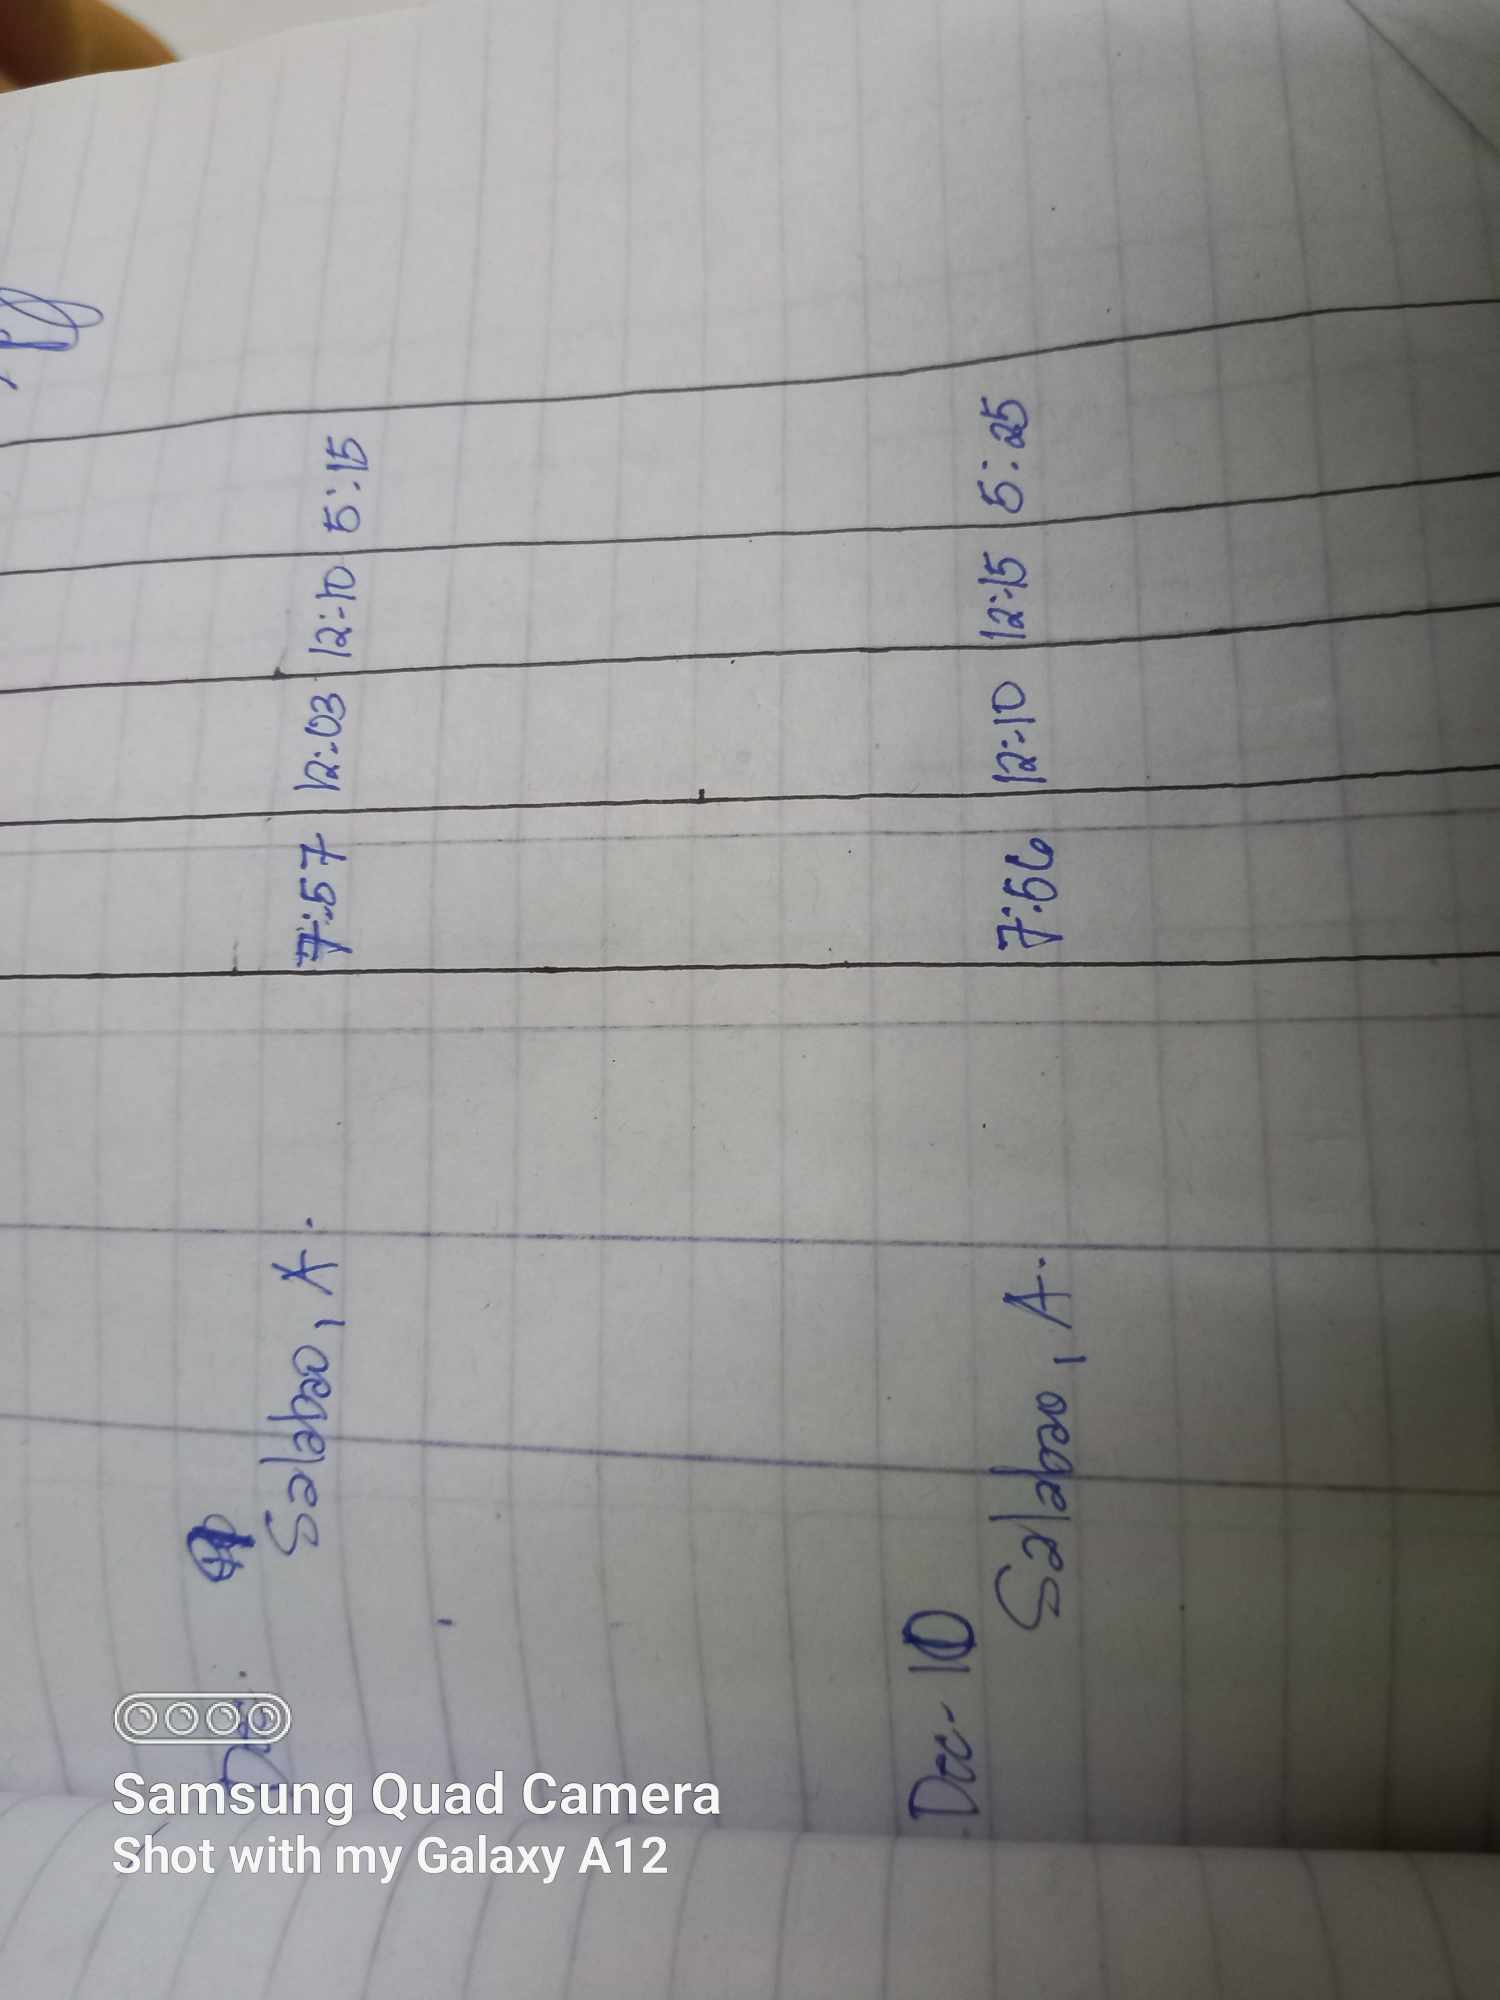 Dec. 9
Salabao, A. 7:57 12:03 12:10 5:15
Dec- 10
Salabao, A. 7:56 12:10 12:15 5:25
Samsung Quad Camera
Shot with my Galaxy A12